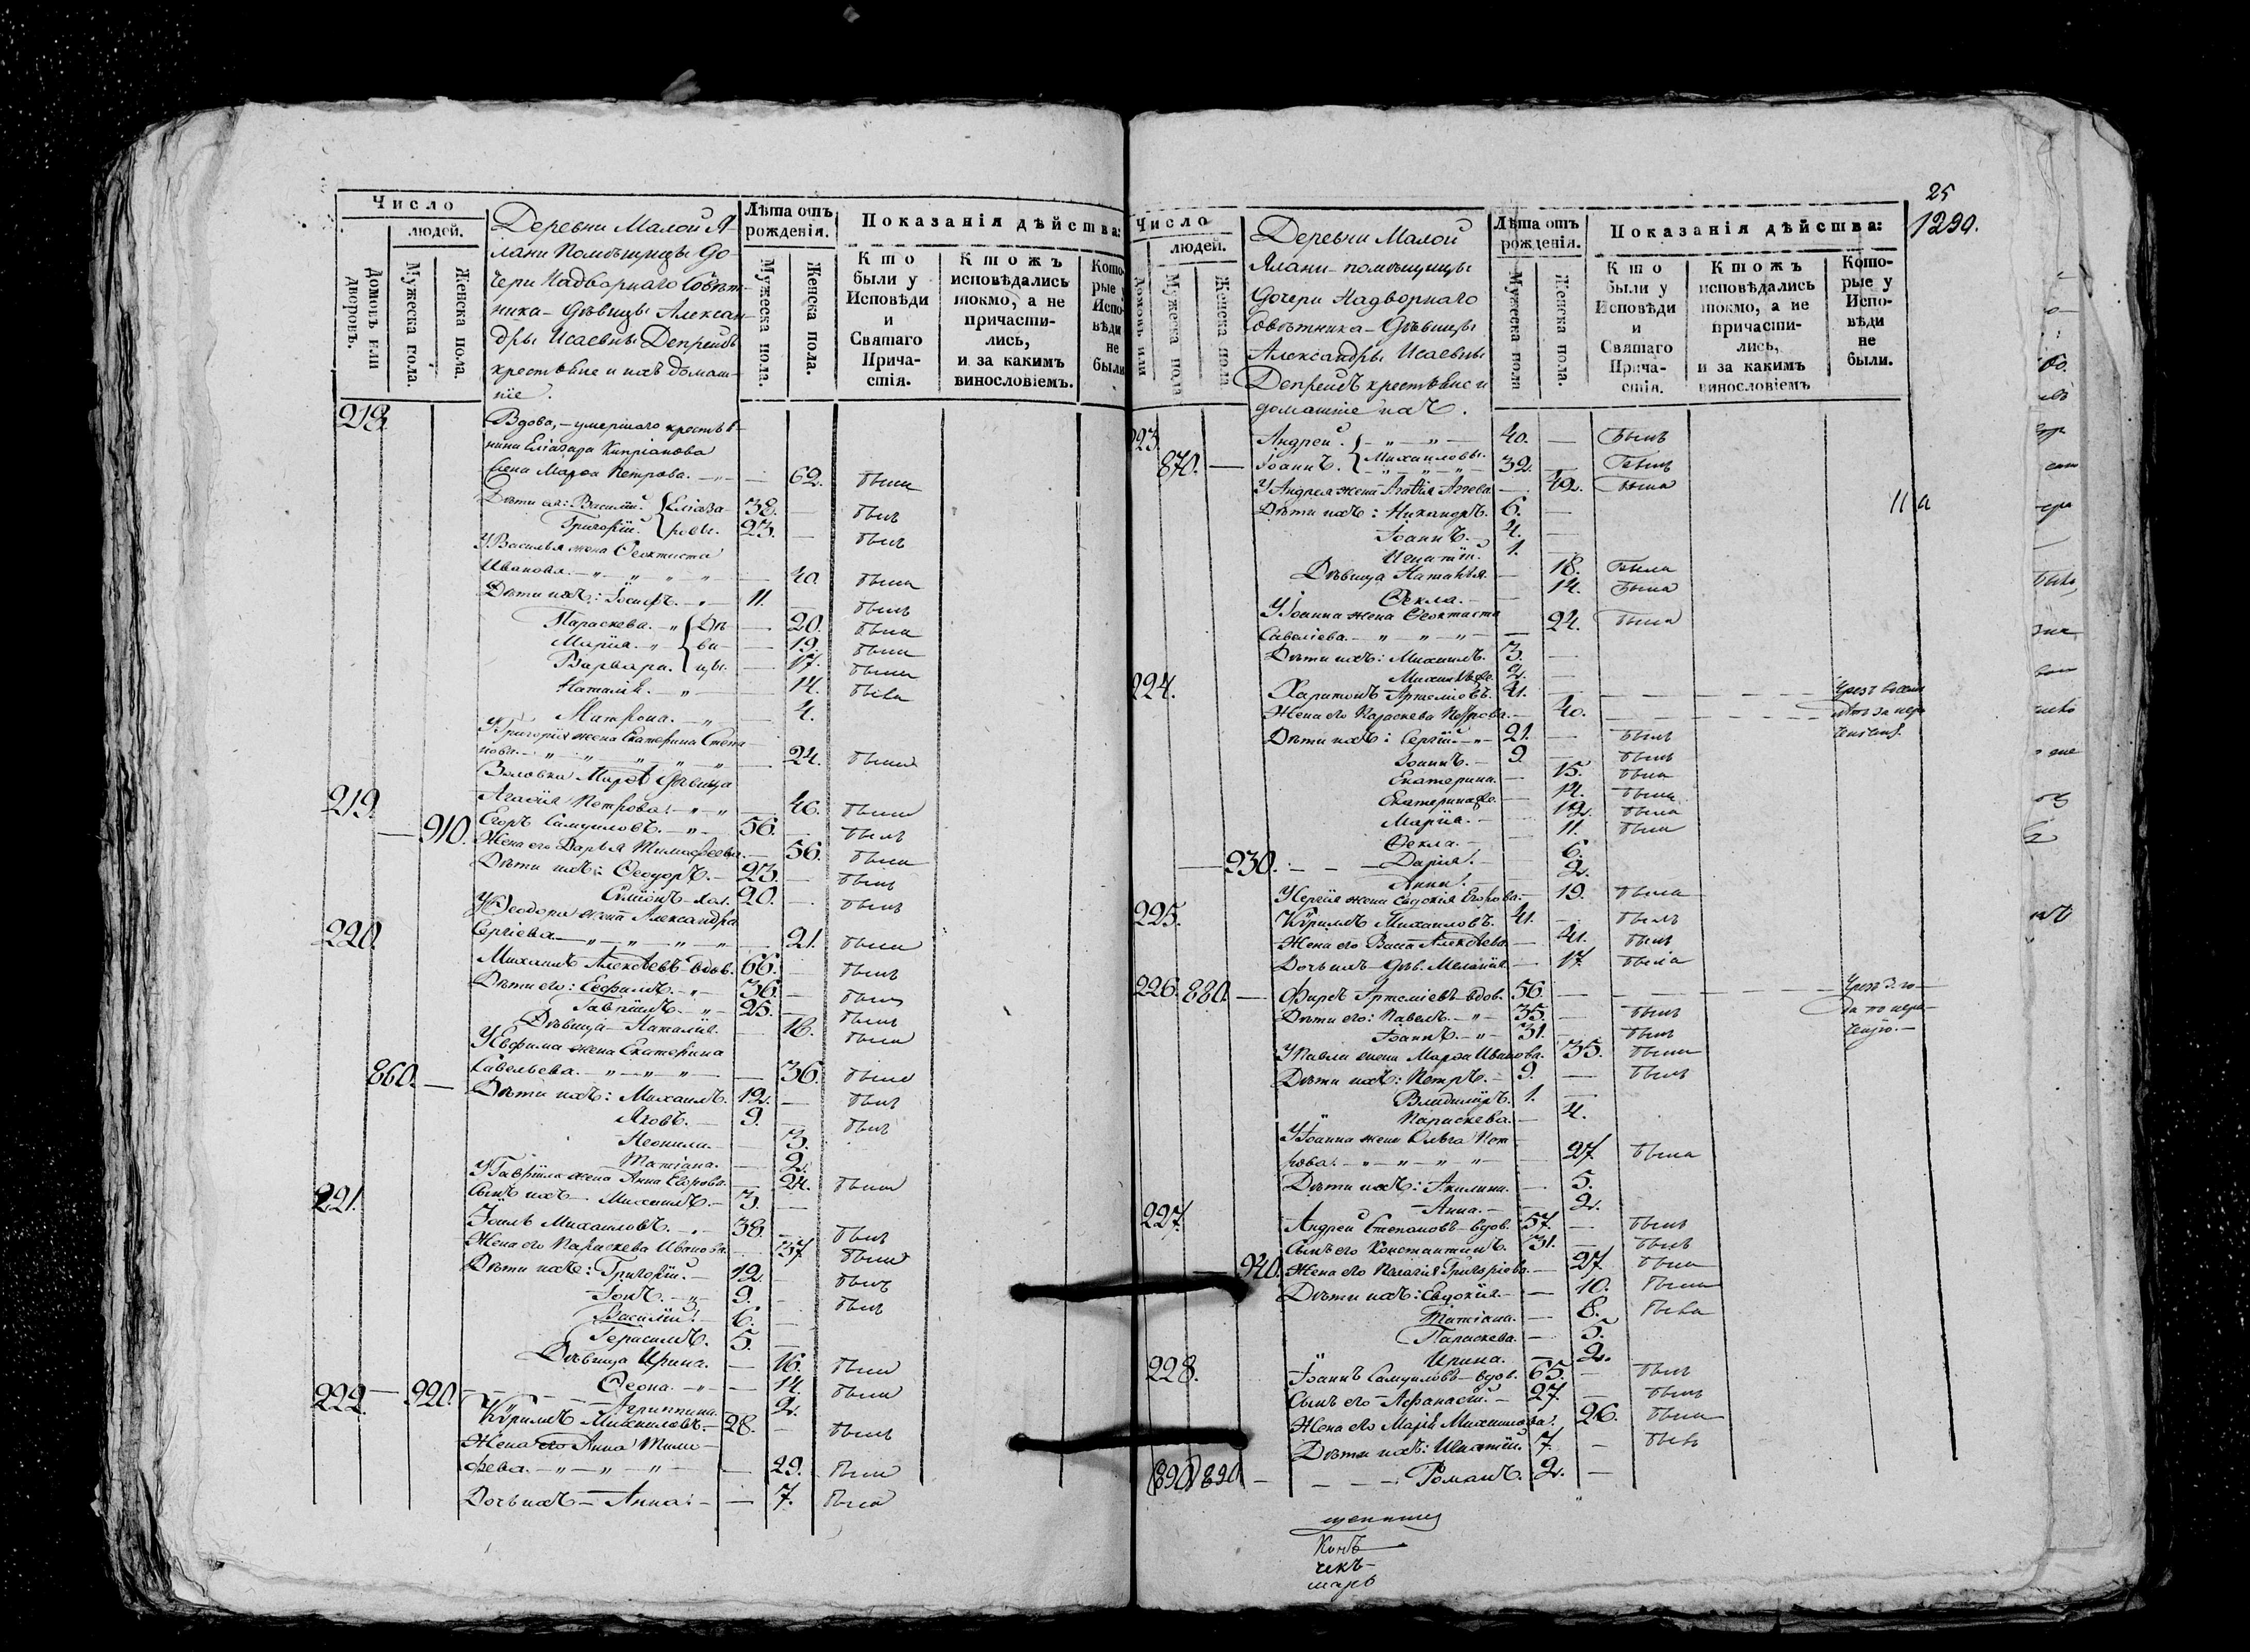 Число
людей.
Домовъ или дворовъ.
Мужеска пола.
Женска пола.
Деревни Малой Я-
лани Помѣщицы до-
чери Надворнаго Совѣт-
ника - дѣвицы Алексан-
дры Исаевны Депрейсъ
крестьяне и ихъ домаш-
ніе.
Лѣта отъ рожденія.
Мужеска пола.
Женска пола.
Показанія дѣйства:
Кто были у Исповѣди и Святаго Прича-стія.
Ктожъ исповѣдались токмо, а не причасти-лись, и за какимъ винословіемъ.
Кото-рые у Испо-вѣди не были
Вдова, - умершаго крестья-
нина Еліазара Кипріанова
Елена Марѳа Петрова. — 62. была
Дѣти ея: Василій. { Еліаза- 38. — былъ
Григорій. { ровы. 23. — былъ
У Василья жена Ѳеоктиста
Иванова. — 40. была
Дѣти ихъ: Іосифъ. 11. — былъ
Параскева. { Дѣ- — 20. была
Марія. { ви- — 19. была
Варвара. { цы. — 17. была
Наталія. — 14. была
Матрона. — 4.
У Григорія жена Екатерина Степа-
нова. — 24. была
Агаѳія Петрова. — 46. была
219. Егоръ Самуиловъ. 56. — былъ
910. Жена его Дарья Тимофеева. — 56. была
Дѣти ихъ: Ѳеодоръ. 23. — былъ
Симіонъ - хол. 20. — былъ
У Ѳеодора жена Александра
Сергіева. — 21. была
220. Михаилъ Алексѣевъ - вдов. 66. — былъ
Дѣти его: Евфимъ. 36. — былъ
Гавріилъ. 25. — былъ
Дѣвица - Наталія. — 16. была
У Евфима жена Екатерина
Савельева. — 36. была
860. Дѣти ихъ: Михаилъ. 12. — былъ
Яковъ. 9. — былъ
Неонила. — 3.
Татіана. — 2.
У Гавріила жена Анна Егорова. — 24. была
Сынъ ихъ Михаилъ. 3. —
221. Іоиль Михаиловъ. 38. — былъ
Жена его Параскева Иванова. — 37. была
Дѣти ихъ: Григорій. 12. — былъ
9. — былъ
Василій. 6. —
Герасимъ. 5. —
Дѣвица Ирина. — 16. была
14. была
920. Агриппина. — 2.
222. Кѵриллъ Михаиловъ. 28. — былъ
Жена его Анна Тимо-
феева. — 29. была
Дочь ихъ - Анна. — 7. была
25
1290.
Число
людей.
Домовъ или
Мужеска пола
Женска пола
Деревни Малой
Ялани - помѣщицы
дочери Надворнаго
Совѣтника - дѣвицы
Александры Исаевны
Депрейсъ крестьяне и
домашніе ихъ.
Лѣта отъ рожденія.
Мужеска пола
Женска пола.
Показанія дѣйства:
Кто были у Исповѣди и Святаго Прича-стія.
Ктожъ исповѣдались токмо, а не причасти-лись, и за какимъ винословіемъ
Кото-рые у Испо-вѣди не были.
223. Андрей. { 40. — былъ
870. Іоаннъ. { Михаиловы. 32. — былъ
У Андрея жена Агаѳія — 42. была
Дѣти ихъ: Никандръ. 6. —
Іоаннъ. 4. —
Игнатій. 1. —
Дѣвица Наталья. — 18. была
Ѳекла. — 14. была
У Іоанна жена Ѳеоктиста
Савеліева. — 24. была
Дѣти ихъ: Михаилъ. 3. —
Михаилъ 2. —
224. Харитонъ Артеміевъ. 41. —
Жена его Параскева Петрова. — 40.
Дѣти ихъ: Сергій. 21. — былъ
Іоаннъ. 9. — былъ
Екатерина. — 15. была
Екатерина — 14. была
Марія. — 12. была
Ѳекла. — 11. была
230. Дарія. — 6.
Анна. — 2.
У Сергія жена Евдокія Егорова. — 19. была
225. Кѵриллъ Михаиловъ. 41. — былъ
Жена его Васса Алексѣева. — 41. былъ
Дочь ихъ - дѣв. Меланія. — 17. была
226. 880. Фирсъ Артеміевъ - вдов. 56. —
Дѣти его: Павелъ. 35. — былъ
Іоаннъ. 31. — былъ
У Павла жена Марѳа Иванова. — 35. была
Дѣти ихъ: Петръ. 9. — былъ
Владиміръ. 1. —
Параскева. — 4.
У Іоанна жена Ольга Пет-
рова. — 27. была
Дѣти ихъ: Акилина. — 5.
Анна. — 2.
227. Андрей Степановъ - вдов. 57. — былъ
Сынъ его Константинъ. 31. — былъ
940. Жена его Пелагія Григоріева. — 27. была
Дѣти ихъ: Евдокія. — 10. была
Татіана. — 8. была
Параскева. — 5.
Ирина. — 2.
228. Іоаннъ Самуиловъ - вдов. 65. — былъ
Сынъ его - Афанасій. 27. — былъ
Жена его Марія Михаилова. — 26. была
Дѣти ихъ: Игнатій. 7. — былъ
890 890 Романъ. 2. —